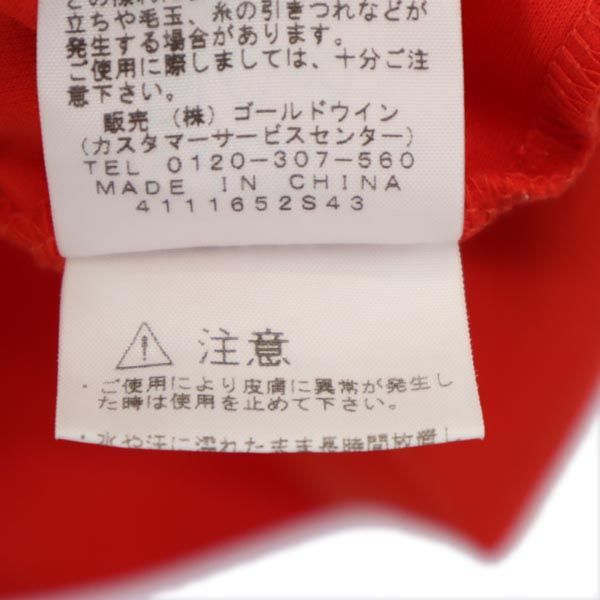 立ちや毛玉、糸の引きつれなどが
発生する場合があります。
ご使用に際しましては、十分ご注
意下さい。
販売 (株) ゴールドウイン
(カスタマーサービスセンター)
TEL 0120-307-560
MADE IN CHINA
4111652S43
注意
・ご使用により皮膚に異常が発生し
た時は使用を止めて下さい。
・水や汗に濡れたまま長時間放置し